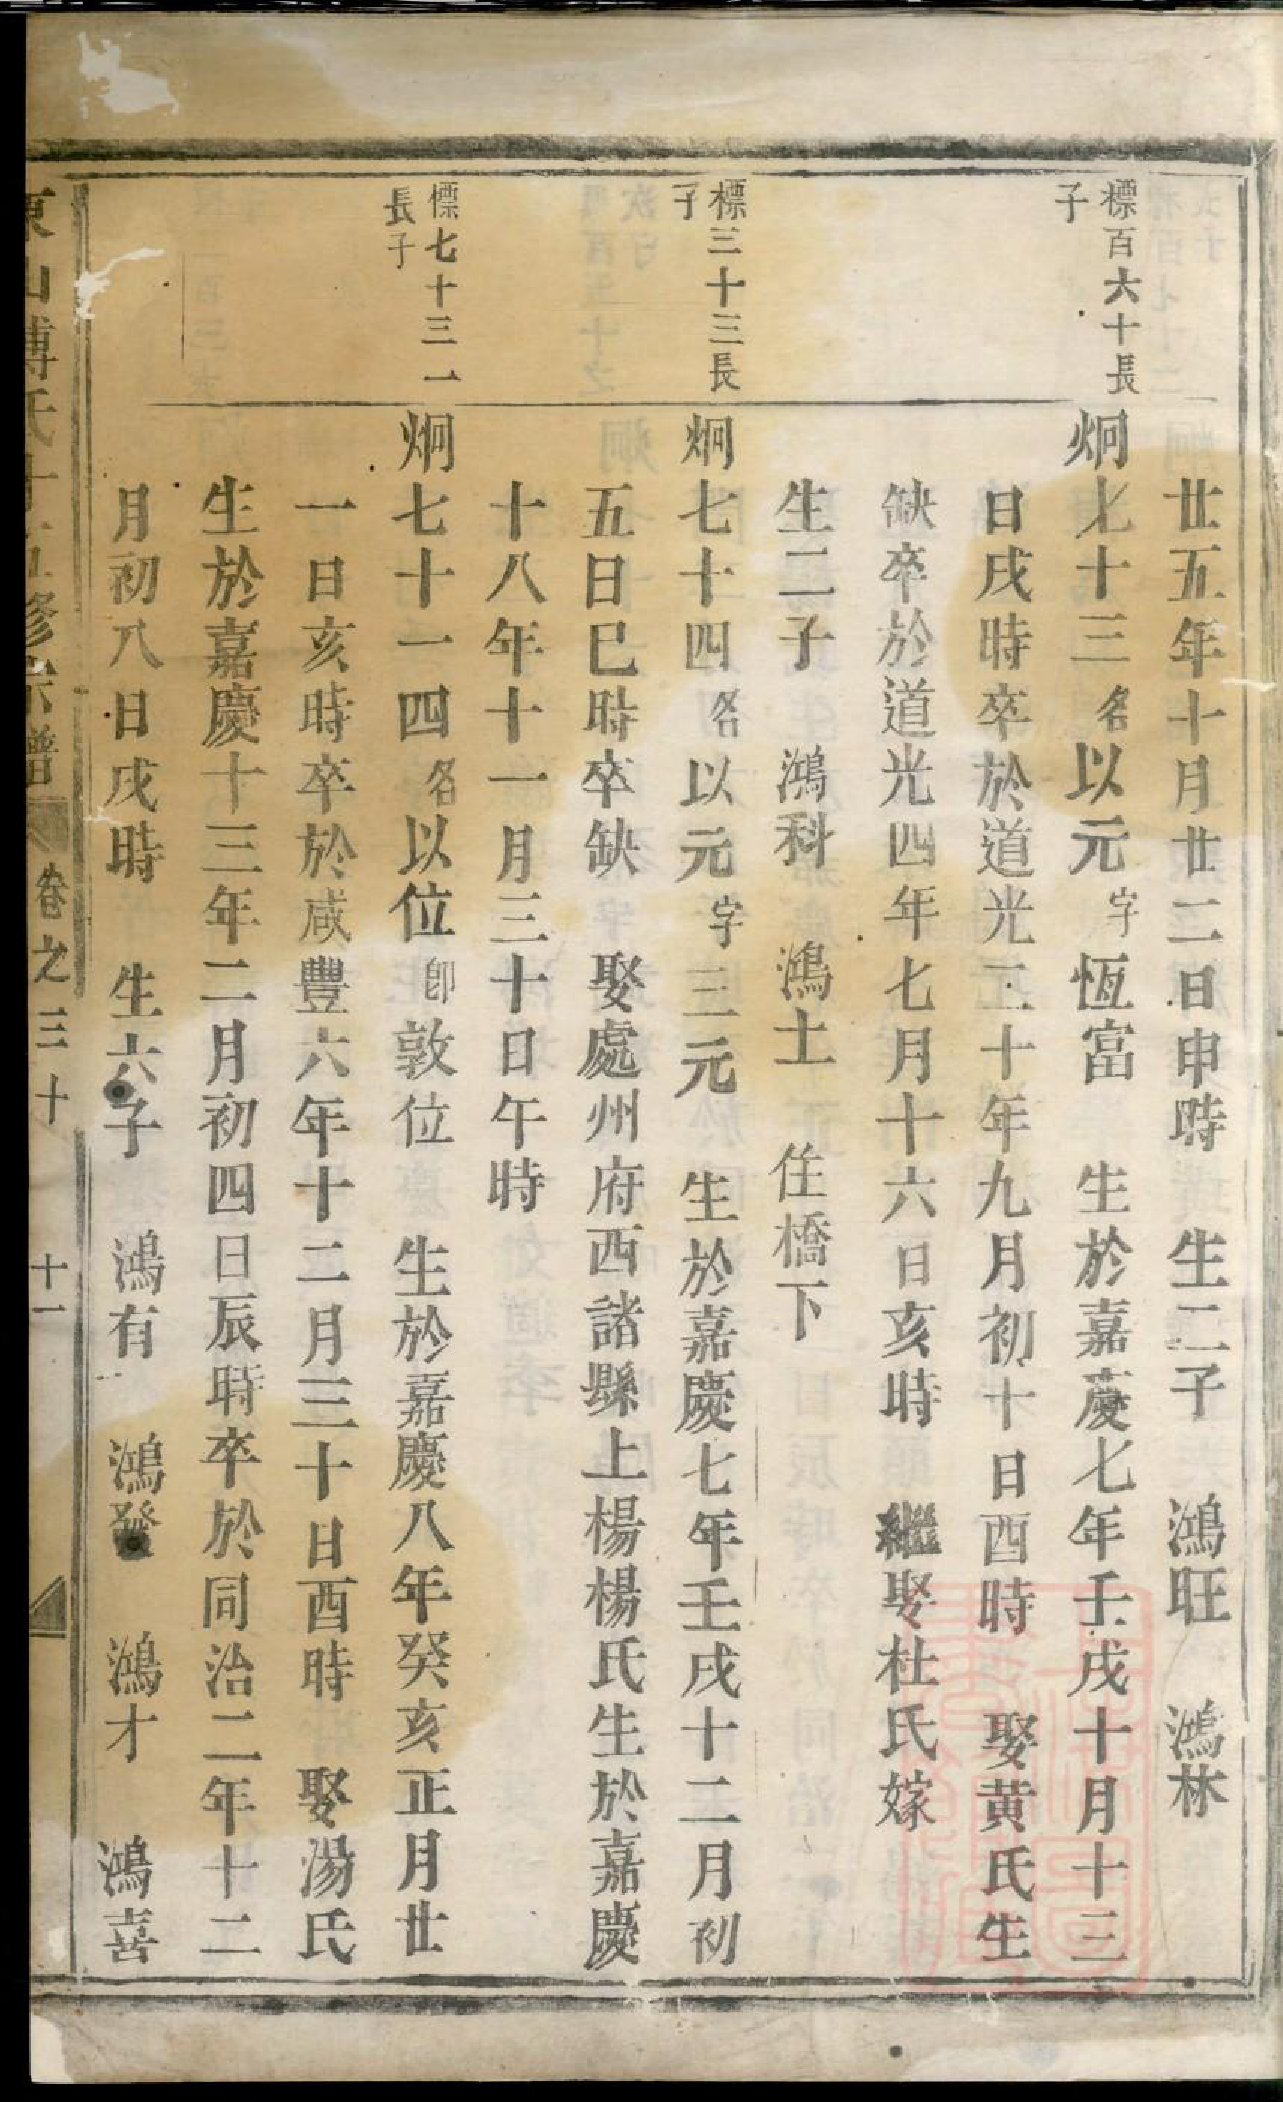 廿五年十月廿二日申時　生二子　鴻旺　鴻林
標百六十長
子
炯七十三名以元字恆富　生於嘉慶七年壬戌十月十三
日戌時卒於道光二十年九月初十日酉時　娶黄氏生
缺卒於道光四年七月十六日亥時　繼娶杜氏嫁
生二子　鴻科　鴻土　住橋下
標三十三長
子
炯七十四名以元字三元　生於嘉慶七年壬戌十二月初
五日巳時卒缺　娶處州府西諸縣上楊楊氏生於嘉慶
十八年十一月三十日午時
標七十三一
長子
炯七十一四名以位卽敦位　生於嘉慶八年癸亥正月廿
一日亥時卒於咸豐六年十二月三十日酉時　娶湯氏
生於嘉慶十三年二月初四日辰時卒於同治二年十二
月初八日戌時　生六子　鴻有　鴻發　鴻才　鴻喜
東山傅氏十五修宗譜　卷之三十　十一